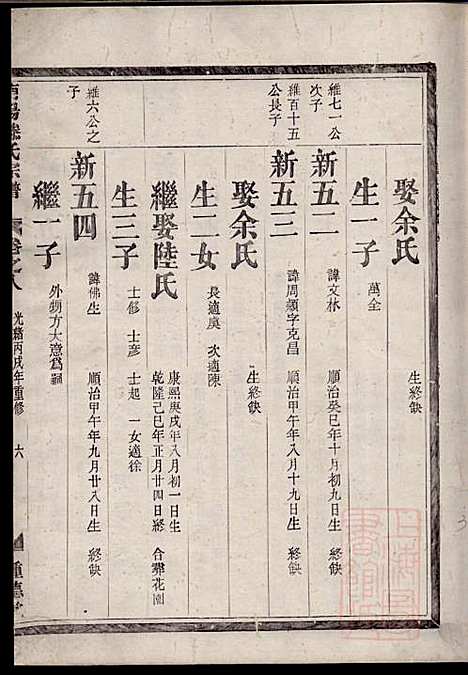 娶余氏 生終缺
生一子 萬全
維七一公次子
新五二 諱文林 順治癸巳年十月初九日生 終缺
維百十五公長子
新五三 諱周顯字克昌 順治甲午年八月十九日生 終缺
娶余氏 生終缺
生二女 長適奠 次適陳
繼娶陸氏 康熙庚戌年八月初一日生 乾隆己巳年正月廿四日終 合葬花園
生三子 士修 士彥 士起 一女適徐
維六公之子
新五四 諱佛生 順治甲午年九月廿八日生 終缺
繼一子 外甥方大意爲嗣
氏宗譜 卷之八 光緒丙戌年重修 六